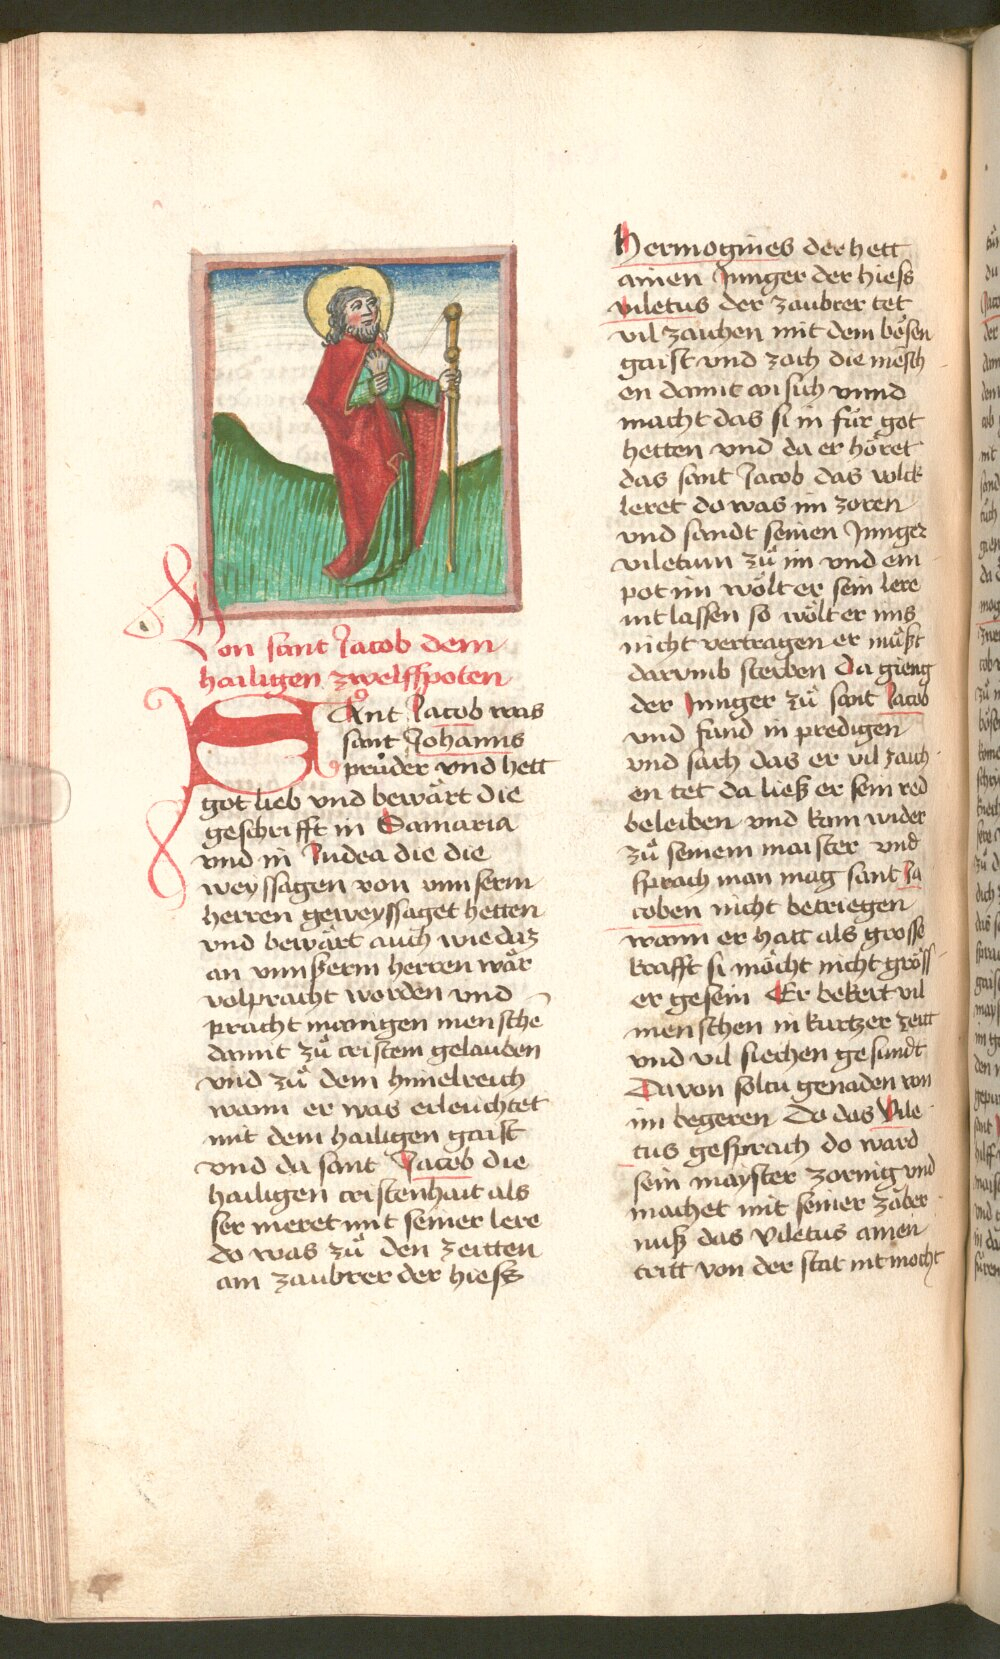 Von sant Jacob dem
hailigen zwelffpoten
SAnt Jacob was
sant Johanns
průder vnd hett
got lieb vnd bewärt die
geschrifft in Samaria
vnd in Judea die die
weyssagen von vnnserm
herren geweyssaget hetten
vnd bewärt auch wie daz
an vnnserm herren wär
volpracht worden vnd
pracht manigen mensche͂
damit zů cristem gelauben
vnd zů dem himelreich
wann er was erleuchtet
mit dem hailigen gaist
vnd da sant Jacob die
hailigen cristenhait als
ser meret mit seiner lere
do was zů den zeitten
ain zaubrer der hiess
Hermogines der hett
ainen Junger der hiess
viletus der zaubrer tet
vil zaichen mit dem bösen
gaist vnd zoch die mesch
en damit an sich vnnd
macht das si in für got
hetten vnd da er höret
das sant Jacob das volck
leret do was im zoren
vnd sandt seinen Junger
viletum zů im vnd em
pot im wölt er sein lere
nit lassen so wölt er ims
nicht vertragen er můßt
darvmb sterben Da gieng
der Junger zů sant Jacob
vnd fand in predigen
vnd sach das er vil zaich
en tet da ließ er sein red
beleiben vnd kam wider
zů seinem maister vnd
sprach man mag sant Ja
coben nicht betriegen
wann er hatt als grosse
krafft si möcht nicht gröss
er gesein Er bekert vil
menschen in kurtzer zeitt
vnd vil siechen gesundt
Davon soltu genaden von
im begeren Do das Vile
tus gesprach do ward
sein mayster zornig vnd
machet mit seiner zaber
nuß das Viletus ainen
tritt von der stat nit mocht